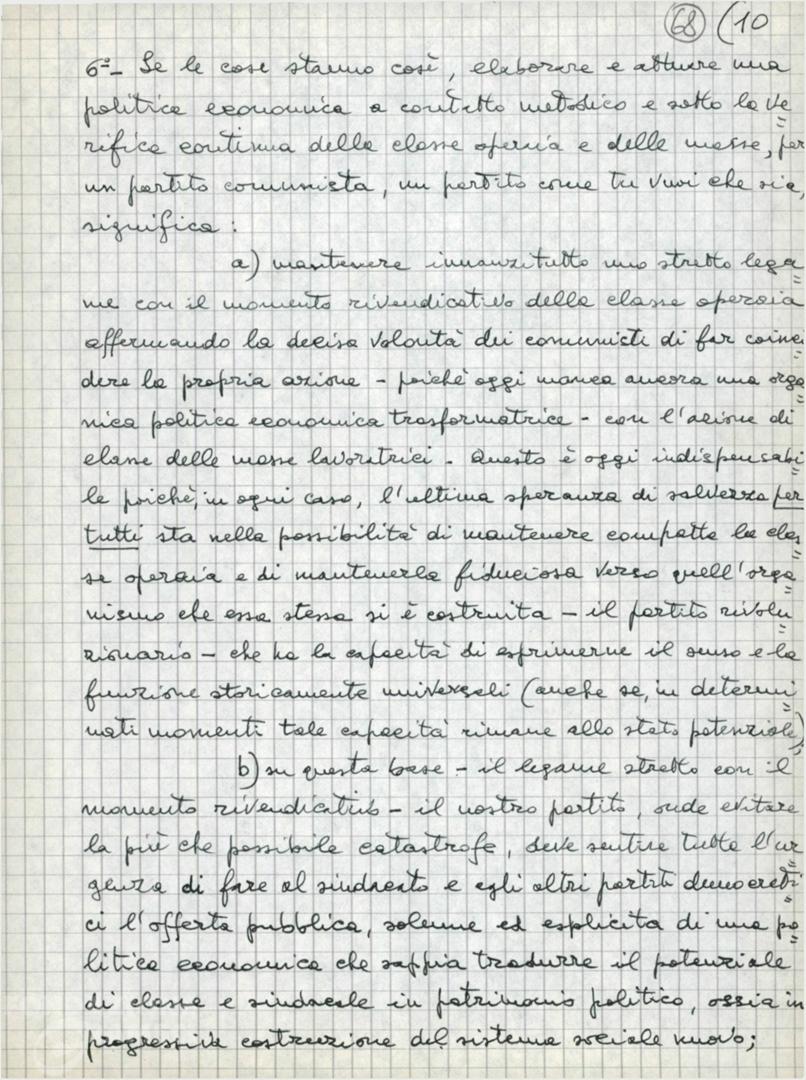 68 (10
6°- Se le cose stanno così, elaborare e attuare una
politica economica a contatto metodico e sotto la ve=
rifica continua della classe operaia e delle masse, per
un partito comunista, un partito come tu vuoi che sia,
significa:
a) mantenere innanzitutto uno stretto lega=
me con il momento rivendicativo della classe operaia
affermando la decisa volontà dei comunisti di far coinci=
dere la propria azione - poiché oggi manca ancora una orga=
nica politica economica trasformatrice - con l'azione di
classe delle masse lavoratrici. Questo è oggi indispensabi=
le poiché, in ogni caso, l'ultima speranza di salvezza per
tutti sta nella possibilità di mantenere compatta la clas=
se operaia e di mantenerla fiduciosa verso quell'orga=
nismo che essa stessa si è costruita - il partito rivolu=
zionario - che ha la capacità di esprimerne il senso e la
funzione storicamente universali (anche se, in determi=
nati momenti tale capacità rimane allo stato potenziale);
b) su questa base - il legame stretto con il
momento rivendicativo - il nostro partito, onde evitare
la più che possibile catastrofe, deve sentire tutta l'ur=
genza di fare al sindacato e agli altri partiti democrati=
ci l'offerta pubblica, solenne ed esplicita di una po=
litica economica che sappia tradurre il potenziale
di classe e sindacale in patrimonio politico, ossia in
progressiva costruzione del sistema sociale nuovo;